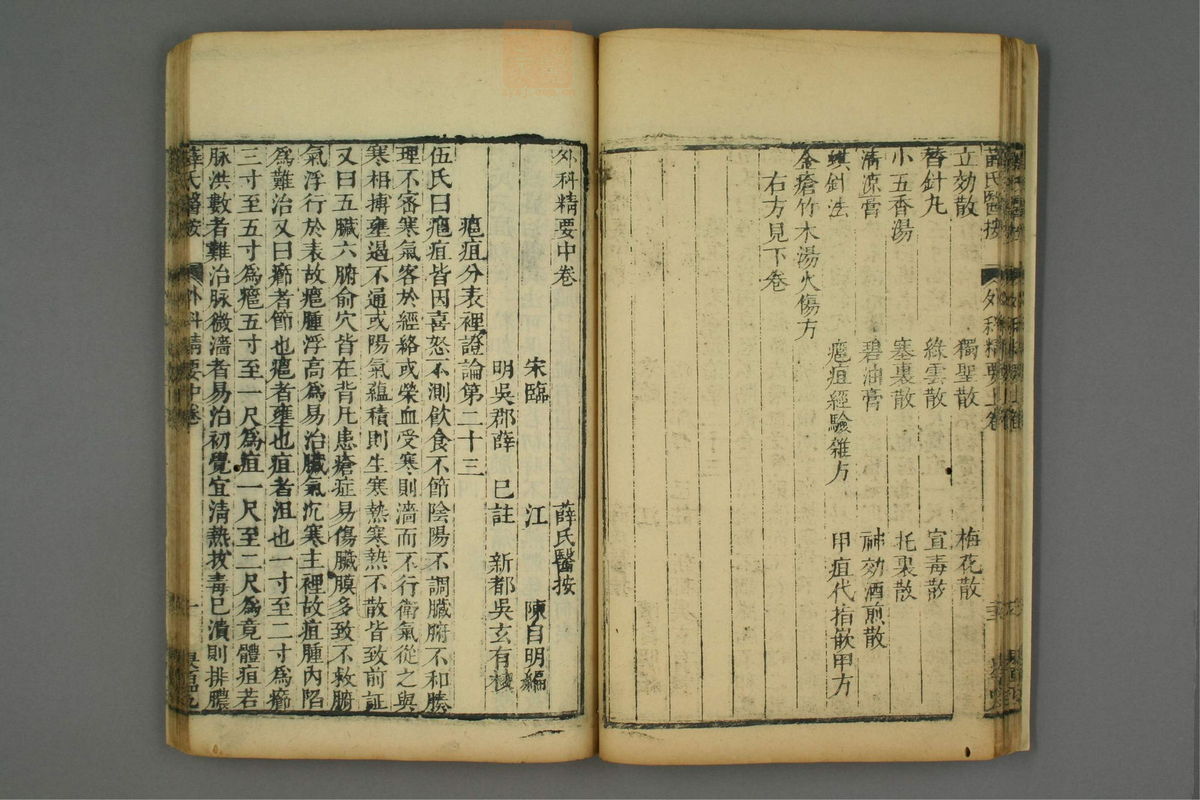 薛氏醫按
外科精要上卷
立効散
獨聖散
梅花散
替針丸
綠雲散
宣毒散
小五香湯
塞裏散
托裏散
清凉膏
碧油膏
神効酒煎散
蜞針法
癰疽經驗雜方
甲疽代指嵌甲方
金瘡竹木湯火傷方
右方見下卷
外科精要中卷
薛氏醫按
宋臨江
陳自明編
明吳郡薛
已註
新都吳玄有
癰疽分表裡證論第二十三
伍氏曰癰疽皆因喜怒不測飲食不節陰陽不調臟腑不和腠
理不密寒氣客於經絡或榮血受寒則濇而不行衛氣從之與
寒相搏壅遏不通或陽氣蘊積則生寒熱寒熱不散皆致前証
又曰五臟六腑俞穴皆在背凡患瘡症易傷臟膜多致不救腑
氣浮行於表故癰腫浮高為易治臟氣沉寒主裡故疽腫內陷
為難治又曰癤者節也癰者壅也疽者沮也一寸至二寸為癤
三寸至五寸為癰五寸至一尺為疽一尺至二尺為竟體疽若
脉洪數者難治脉微濇者易治初覺宜清熱拔毒已潰則排膿
薛氏醫按
外科精要中卷
一